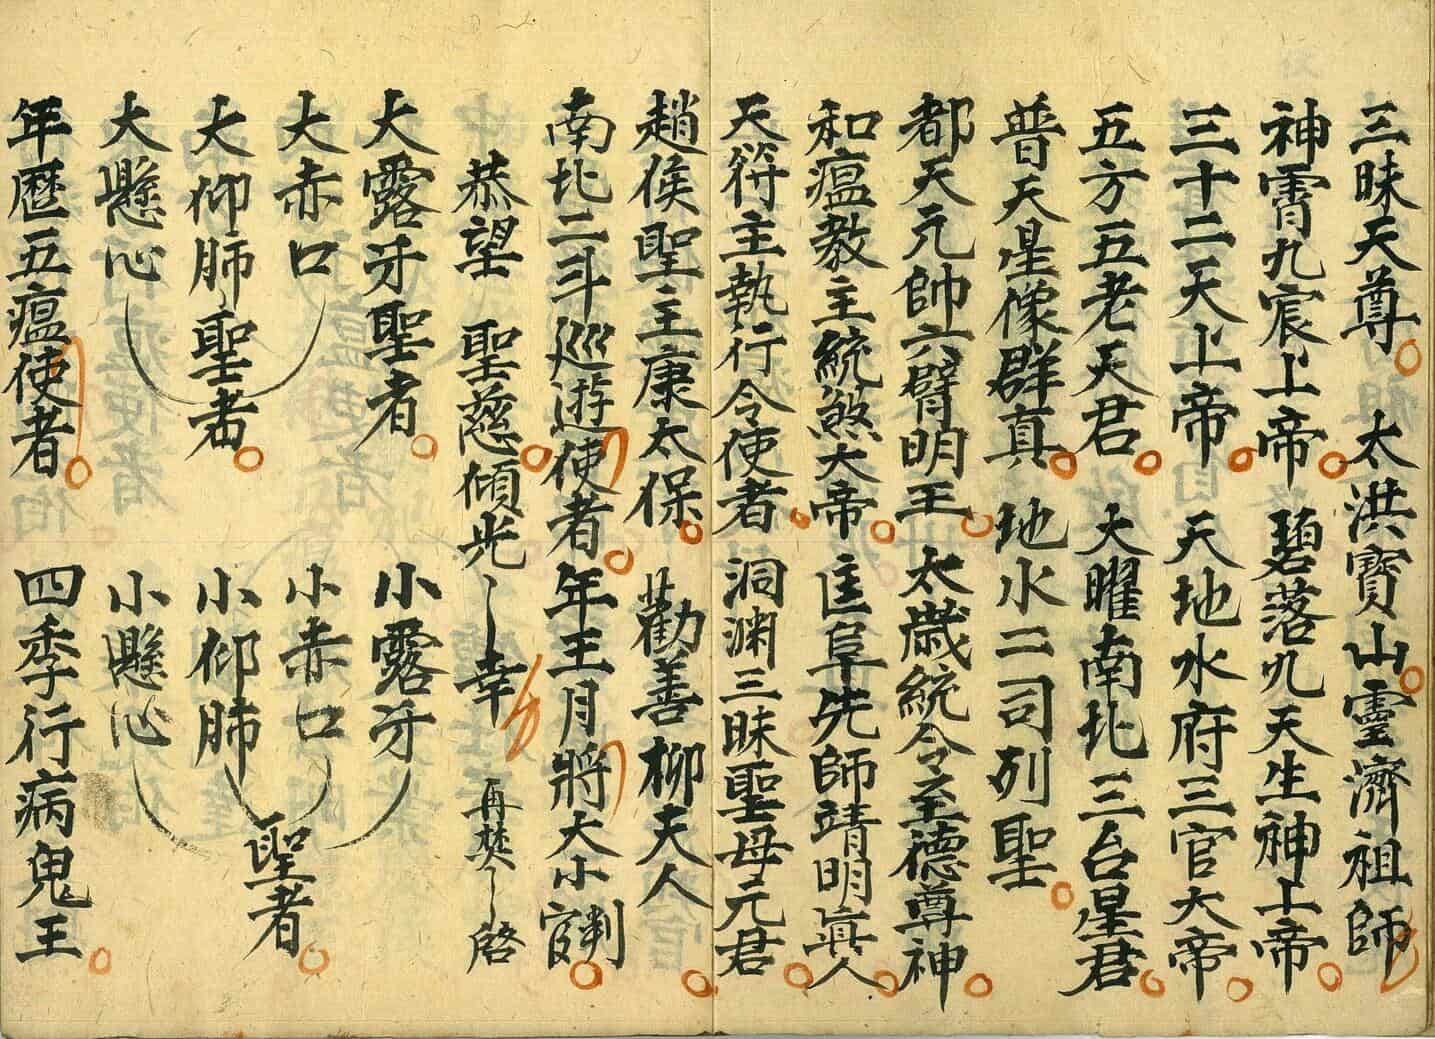 三昧天尊。太洪寶山靈濟祖師
神霄九宸上帝。碧落九天生神上帝。
三十二天上帝。天地水府三官大帝。
五方五老天君。大曜南北三台星君。
普天星像群真。地水二司列聖。
都天元帥六臂明王。太歲統令至德尊神。
和瘟教主統煞大帝。匡阜先師靖明真人。
天符主執行令使者。洞渊三昧聖母元君。
趙侯聖主康太保。勸善柳夫人。
南北二斗巡遊使者。年王月將大小官判。
恭望 聖慈。傾光 幸 再焚 啓
大露牙聖者。小露牙
大赤口 小赤口
大仰肺聖者。小仰肺聖者。
大懸心 小懸心
年曆五瘟使者。四季行病鬼王。